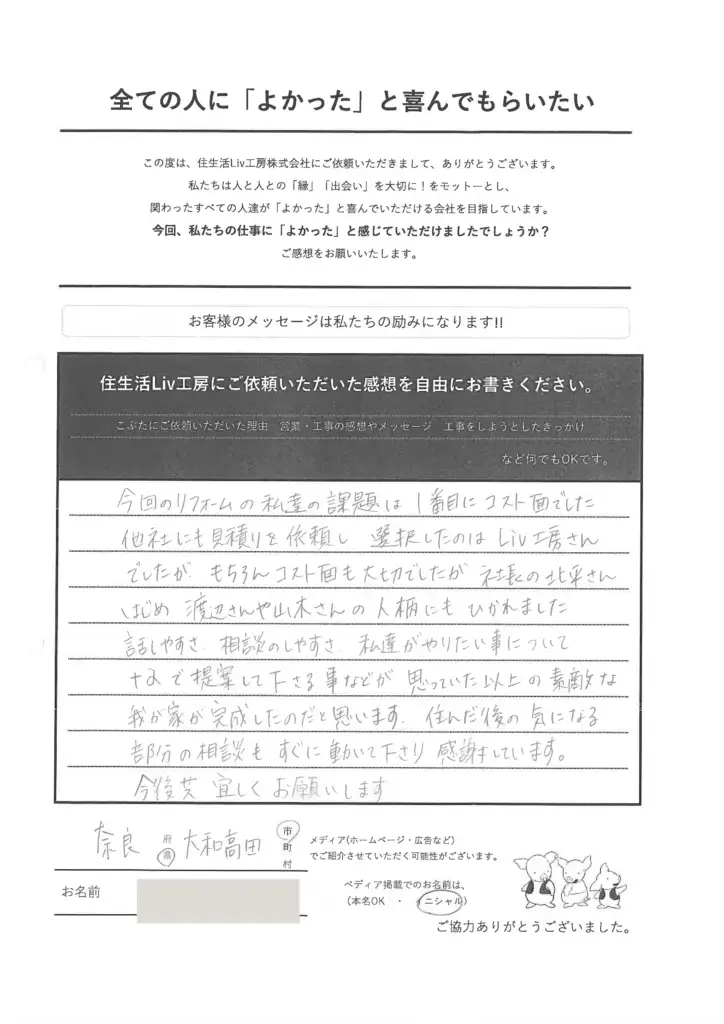 全ての人に「よかった」と喜んでもらいたい
この度は、住生活Liv工房株式会社にご依頼いただきまして、ありがとうございます。
私たちは人と人との「縁」「出会い」を大切に！をモットーとし、
関わったすべての人達が「よかった」と喜んでいただける会社を目指しています。
今回、私たちの仕事に「よかった」と感じていただけましたでしょうか？
ご感想をお願いいたします。
お客様のメッセージは私たちの励みになります!!
住生活Liv工房にご依頼いただいた感想を自由にお書きください。
こぶたにご依頼いただいた理由　営業・工事の感想やメッセージ　工事をしようとしたきっかけ
など何でもOKです。
今回のリフォームの私達の課題は 1番目にコスト面でした
他社にも見積りを依頼し 選択したのは Liv工房さん
でしたが もちろんコスト面も大切でしたが 社長の北平さん
はじめ 渡辺さんや山本さんの人柄にも ひかれました
話しやすさ、相談のしやすさ、私達がやりたい事について
+αで提案して下さる事などが 思っていた以上の素敵な
我が家が完成したのだと思います。住んだ後の気になる
部分の相談も すぐに動いて下さり 感謝しています。
今後共 宜しく お願いします
奈良 府 県 大和高田 市 町 村
メディア(ホームページ・広告など)
でご紹介させていただく可能性がございます。
お名前
ペディア掲載でのお名前は、
(本名OK ・ イニシャル)
ご協力ありがとうございました。